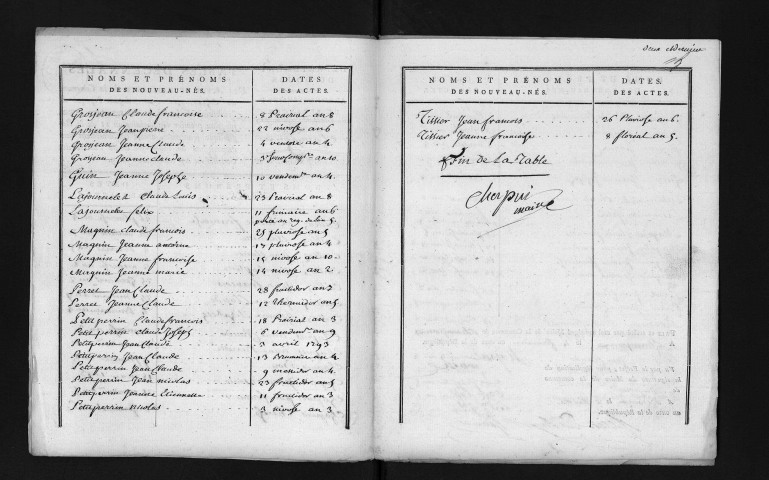 NOMS ET PRÉNOMS DES NOUVEAU-NÉS. DATES DES ACTES.
Grosjean Claude francoise 8 Prairial an 8
Grosjean Jeanpierre 22 nivose an 6
Grosjean Jeanne Claude 4 ventose an 4
Grosjean Jeanne Claude 3e an 10
Guin Jeanne Josephe 10 vendemre an 4
Lajournelet Claude Louis 23 Prairial an 8
Lajournelet felix 11 frimaire an 6
porté au reg. de l'an 5
Magnin Claude francois 25 pluviose an 5
Magnin Jeanne antoine 13 pluviose an 4
Magnin Jeanne francoise 15 nivose an 10
Magnin Jeanne marie 14 nivose an 2
Perret Jean Claude 28 fructidor an 7
Perret Jeanne Claude 12 thermidor an 5
Petit perrin Claude francois 18 Prairial an 3
Petit perrin Claude Joseph 6 vendemre an 9
Petitperrin Jean Claude 3 avril 1793
Petitperrin Jean Claude 13 brumaire an 4
Petitperrin Jean Claude 9 messidor an 4
Petitperrin Jean nicolas 23 fructidor an 5
Petitperrin Jeanne Etiennette 11 fructidor an 3
Petitperrin nicolas 3 nivose an 3
NOMS ET PRÉNOMS DES NOUVEAU-NÉS. DATES. DES ACTES.
Tissier Jean francois 26 Pluviose an 6
Tissier Jeanne francoise 8 floréal an 5
Fin de La Table
Cherpin
maire